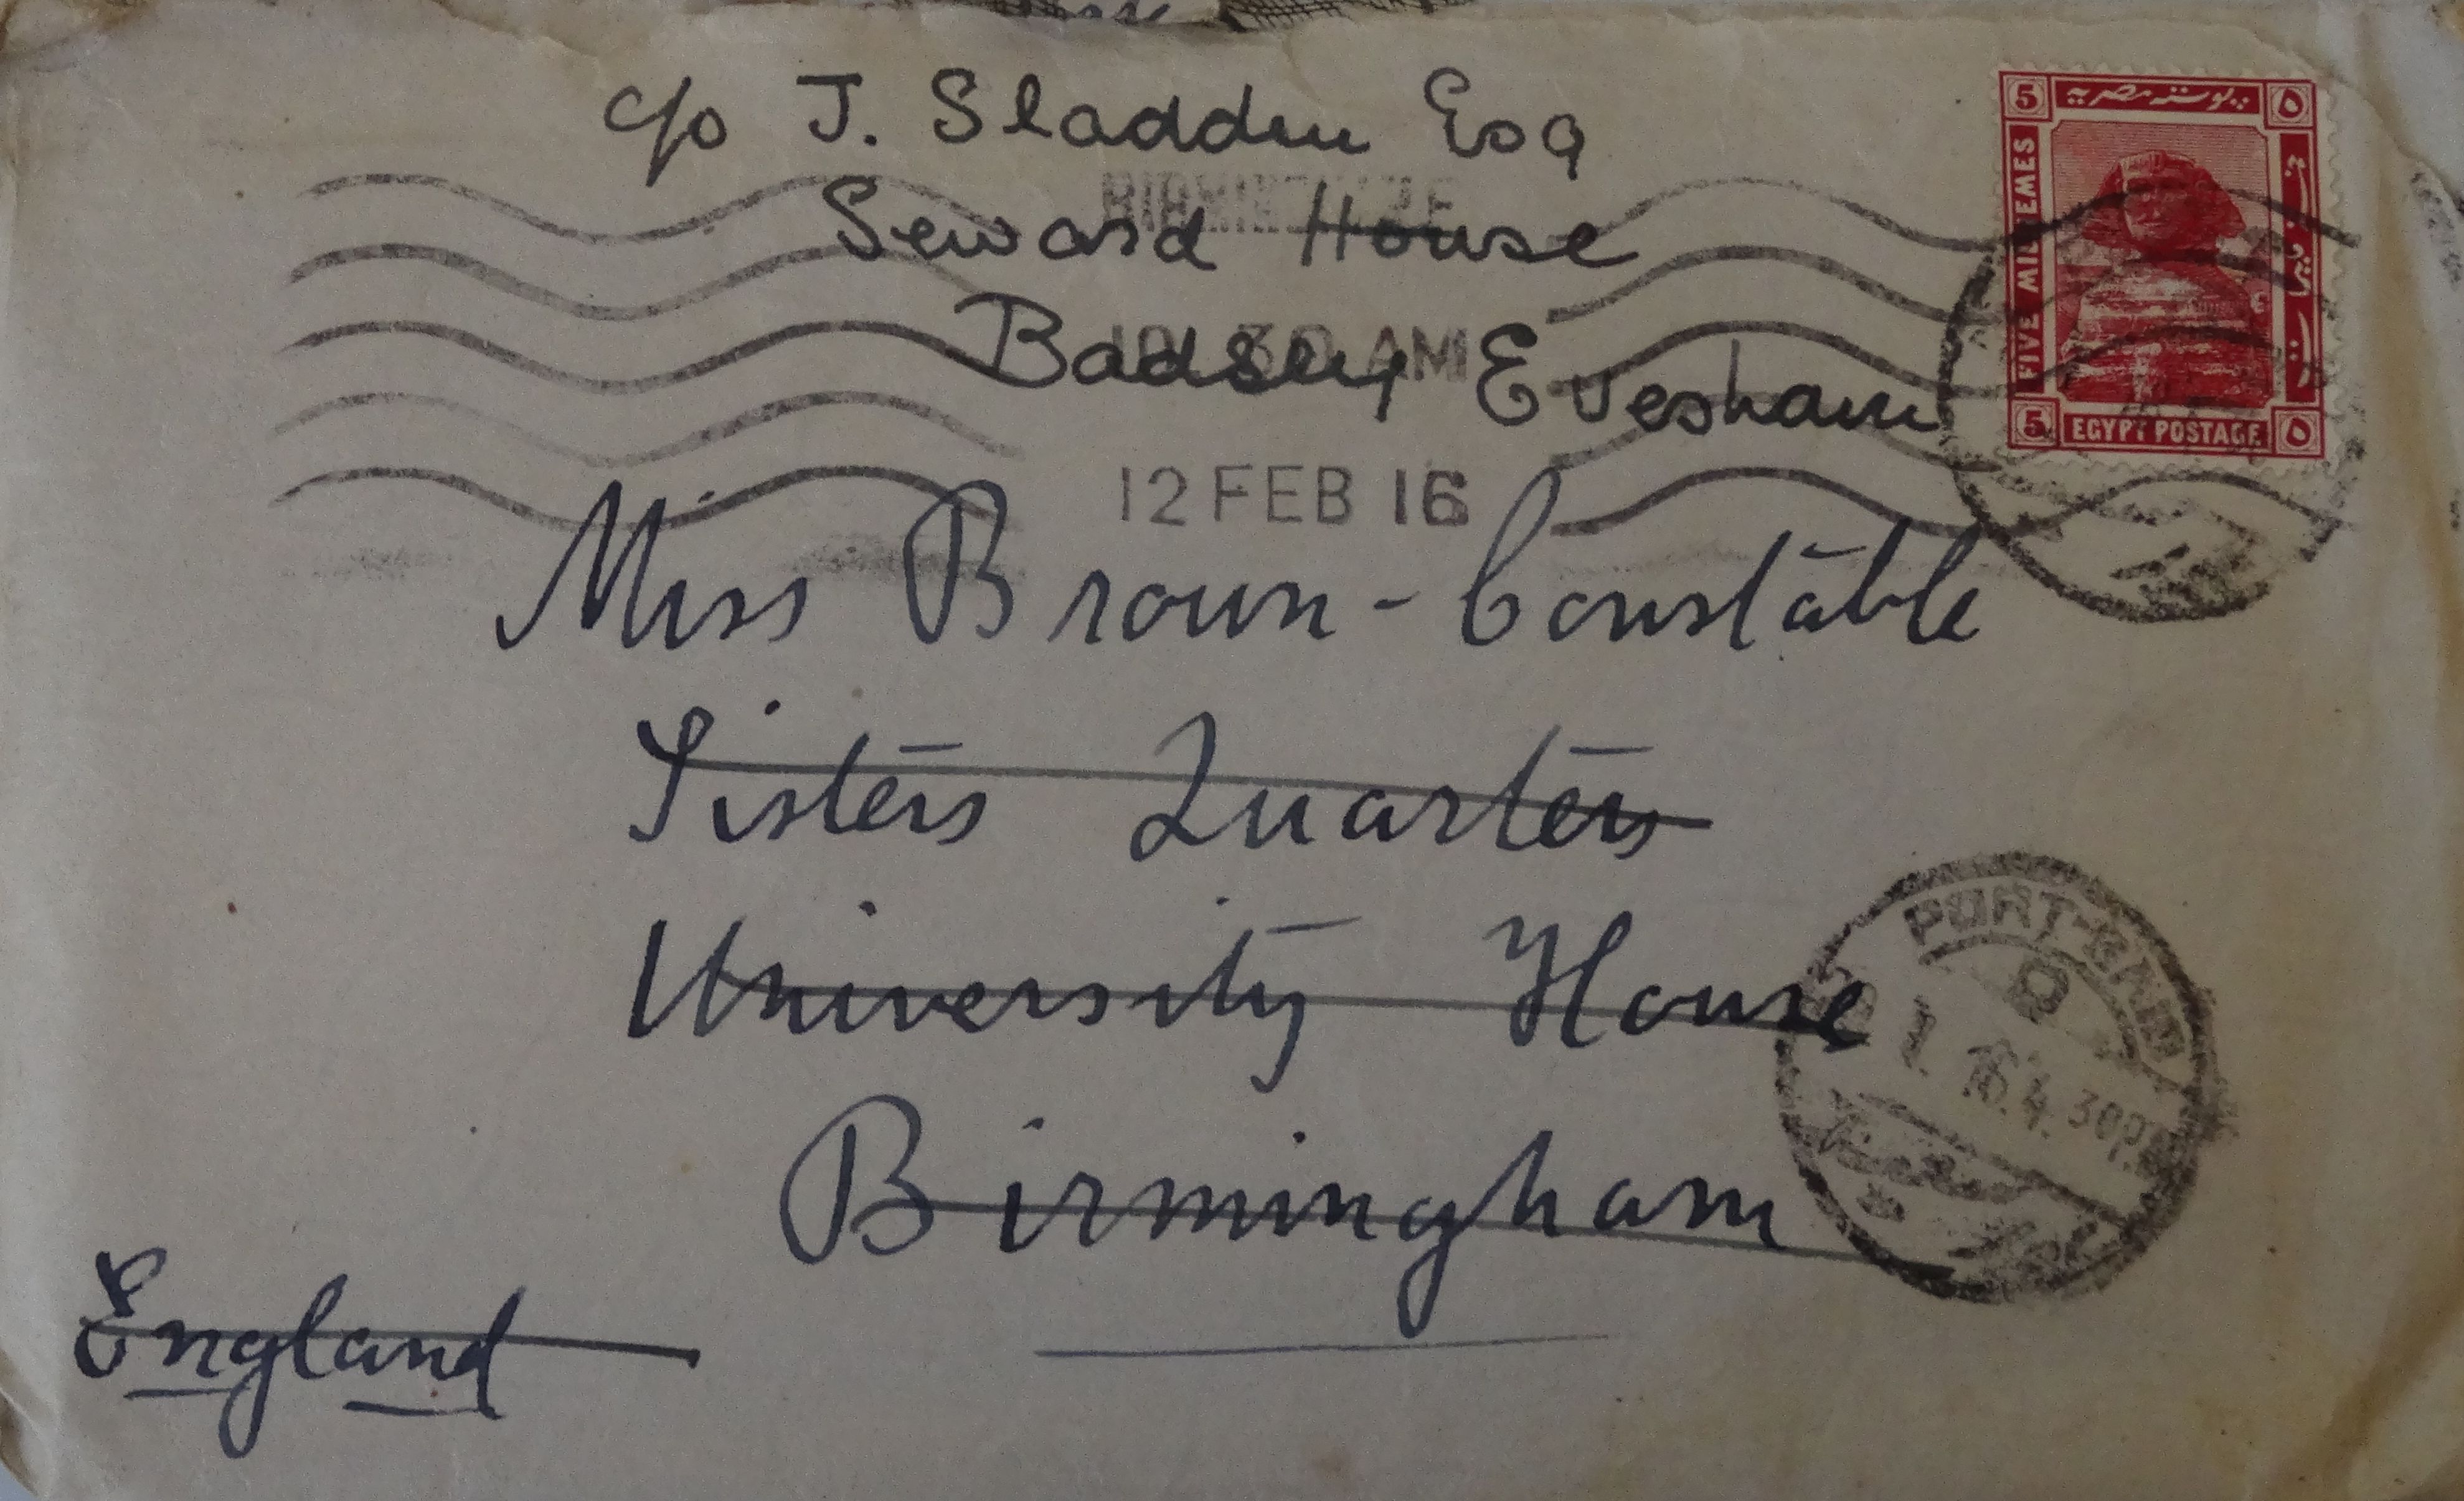 c/o J. Sladden Esq
Seward House
Badsey Evesham
10 30 AM
12 FEB 16
5 بوستة مصرية ٥
FIVE MILLIEMES
5 EGYPT POSTAGE ٥
Miss Brown-Constable
Sisters Quarters
University House
Birmingham
England
PORT-SAID
16. 4. 30 P.